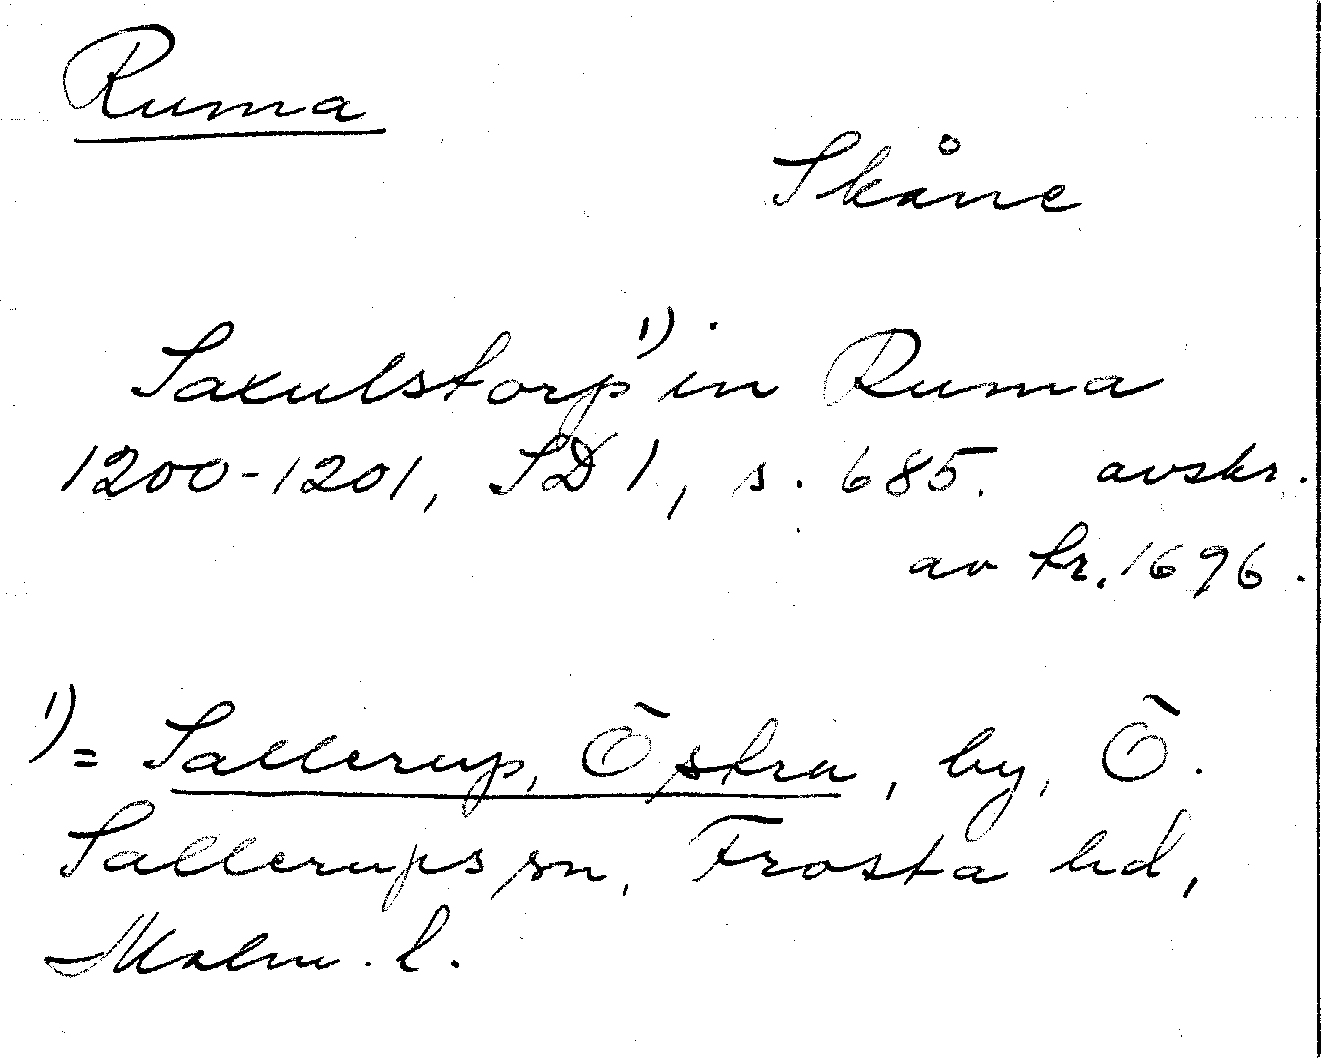 Ruma
Skåne
Saxulstorp¹⁾ in Ruma
1200-1201, SD 1, s. 685. avskr.
av tr. 1696.
¹⁾ = Sallerup, Östra, by, Ö.
Sallerups sn, Frosta hd,
Malm. l.